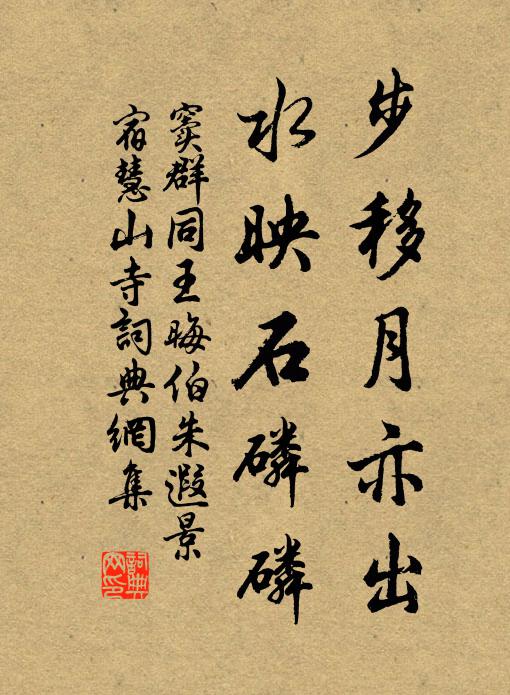 步移月亦出
水映石磷磷
窦群同王晦伯朱遐景
宿慧山寺詞典網集
詞典网印